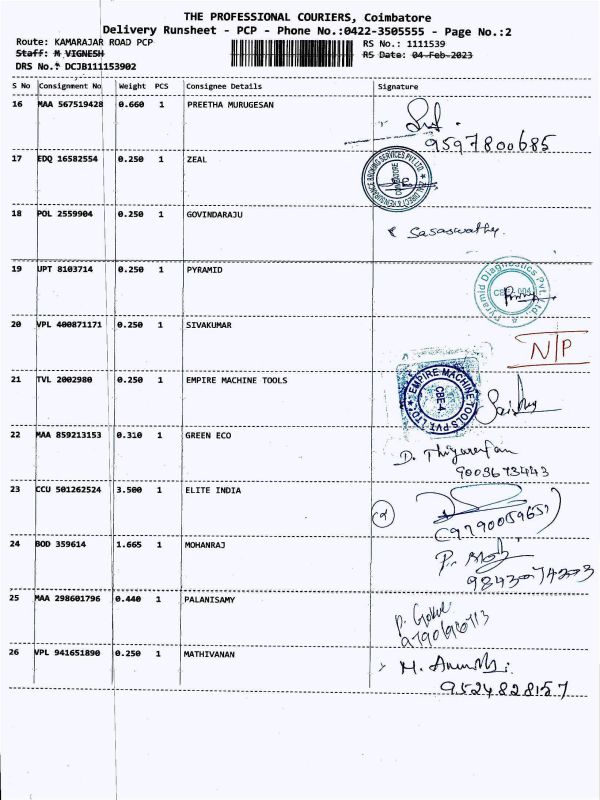 THE PROFESSIONAL COURIERS, Coimbatore
Delivery Runsheet - PCP - Phone No.:0422-3505555 - Page No.:2
Route: KAMARAJAR ROAD PCP RS No.: 1111539
Staff: M VIGNESH RS Date: 04-Feb-2023
DRS No.: DCJB111153902
S No Consignment No Weight PCS Consignee Details Signature
16 MAA 567519428 0.660 1 PREETHA MURUGESAN
9597800685
17 EDQ 16582554 0.250 1 ZEAL
18 POL 2559904 0.250 1 GOVINDARAJU
Sasaswathy
19 UPT 8103714 0.250 1 PYRAMID
Pyramid Diagnostics Pvt. Ltd.
20 VPL 400871171 0.250 1 SIVAKUMAR
N/P
21 TVL 2002980 0.250 1 EMPIRE MACHINE TOOLS
EMPIRE MACHINE TOOLS PVT. LTD.
CBE-4
22 MAA 859213153 0.310 1 GREEN ECO
D.
9003673443
23 CCU 501262524 3.500 1 ELITE INDIA
24 BOD 359614 1.665 1 MOHANRAJ
25 MAA 298601796 0.440 1 PALANISAMY
P. Gokul
26 VPL 941651890 0.250 1 MATHIVANAN
9524828157